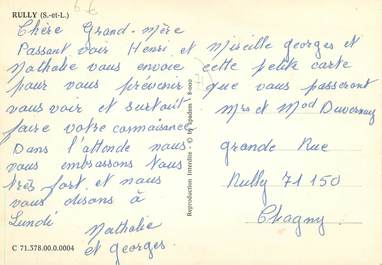 RULLY (S.-et-L.)
Chère Grand-Mère
Passant voir Henri et Mireille georges et
Nathalie vous envoie cette petite carte
pour vous prévenir que vous passeront
vous voir et surtout
faire votre connaissance
Dans l'attende nous
vous embrassons tous
très fort et nous
vous disons à
Lundi
Nathalie
et georges.
Mrs et Mad Duvernay
grande Rue
Rully 71 150
Chagny.
Reproduction Interdite - © by Spadem
C 71.378.00.0.0004